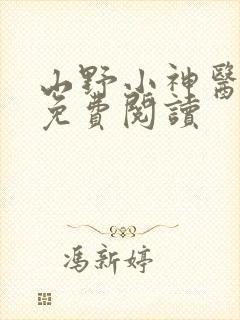 山野小神醫
免費閱讀
馮新婷